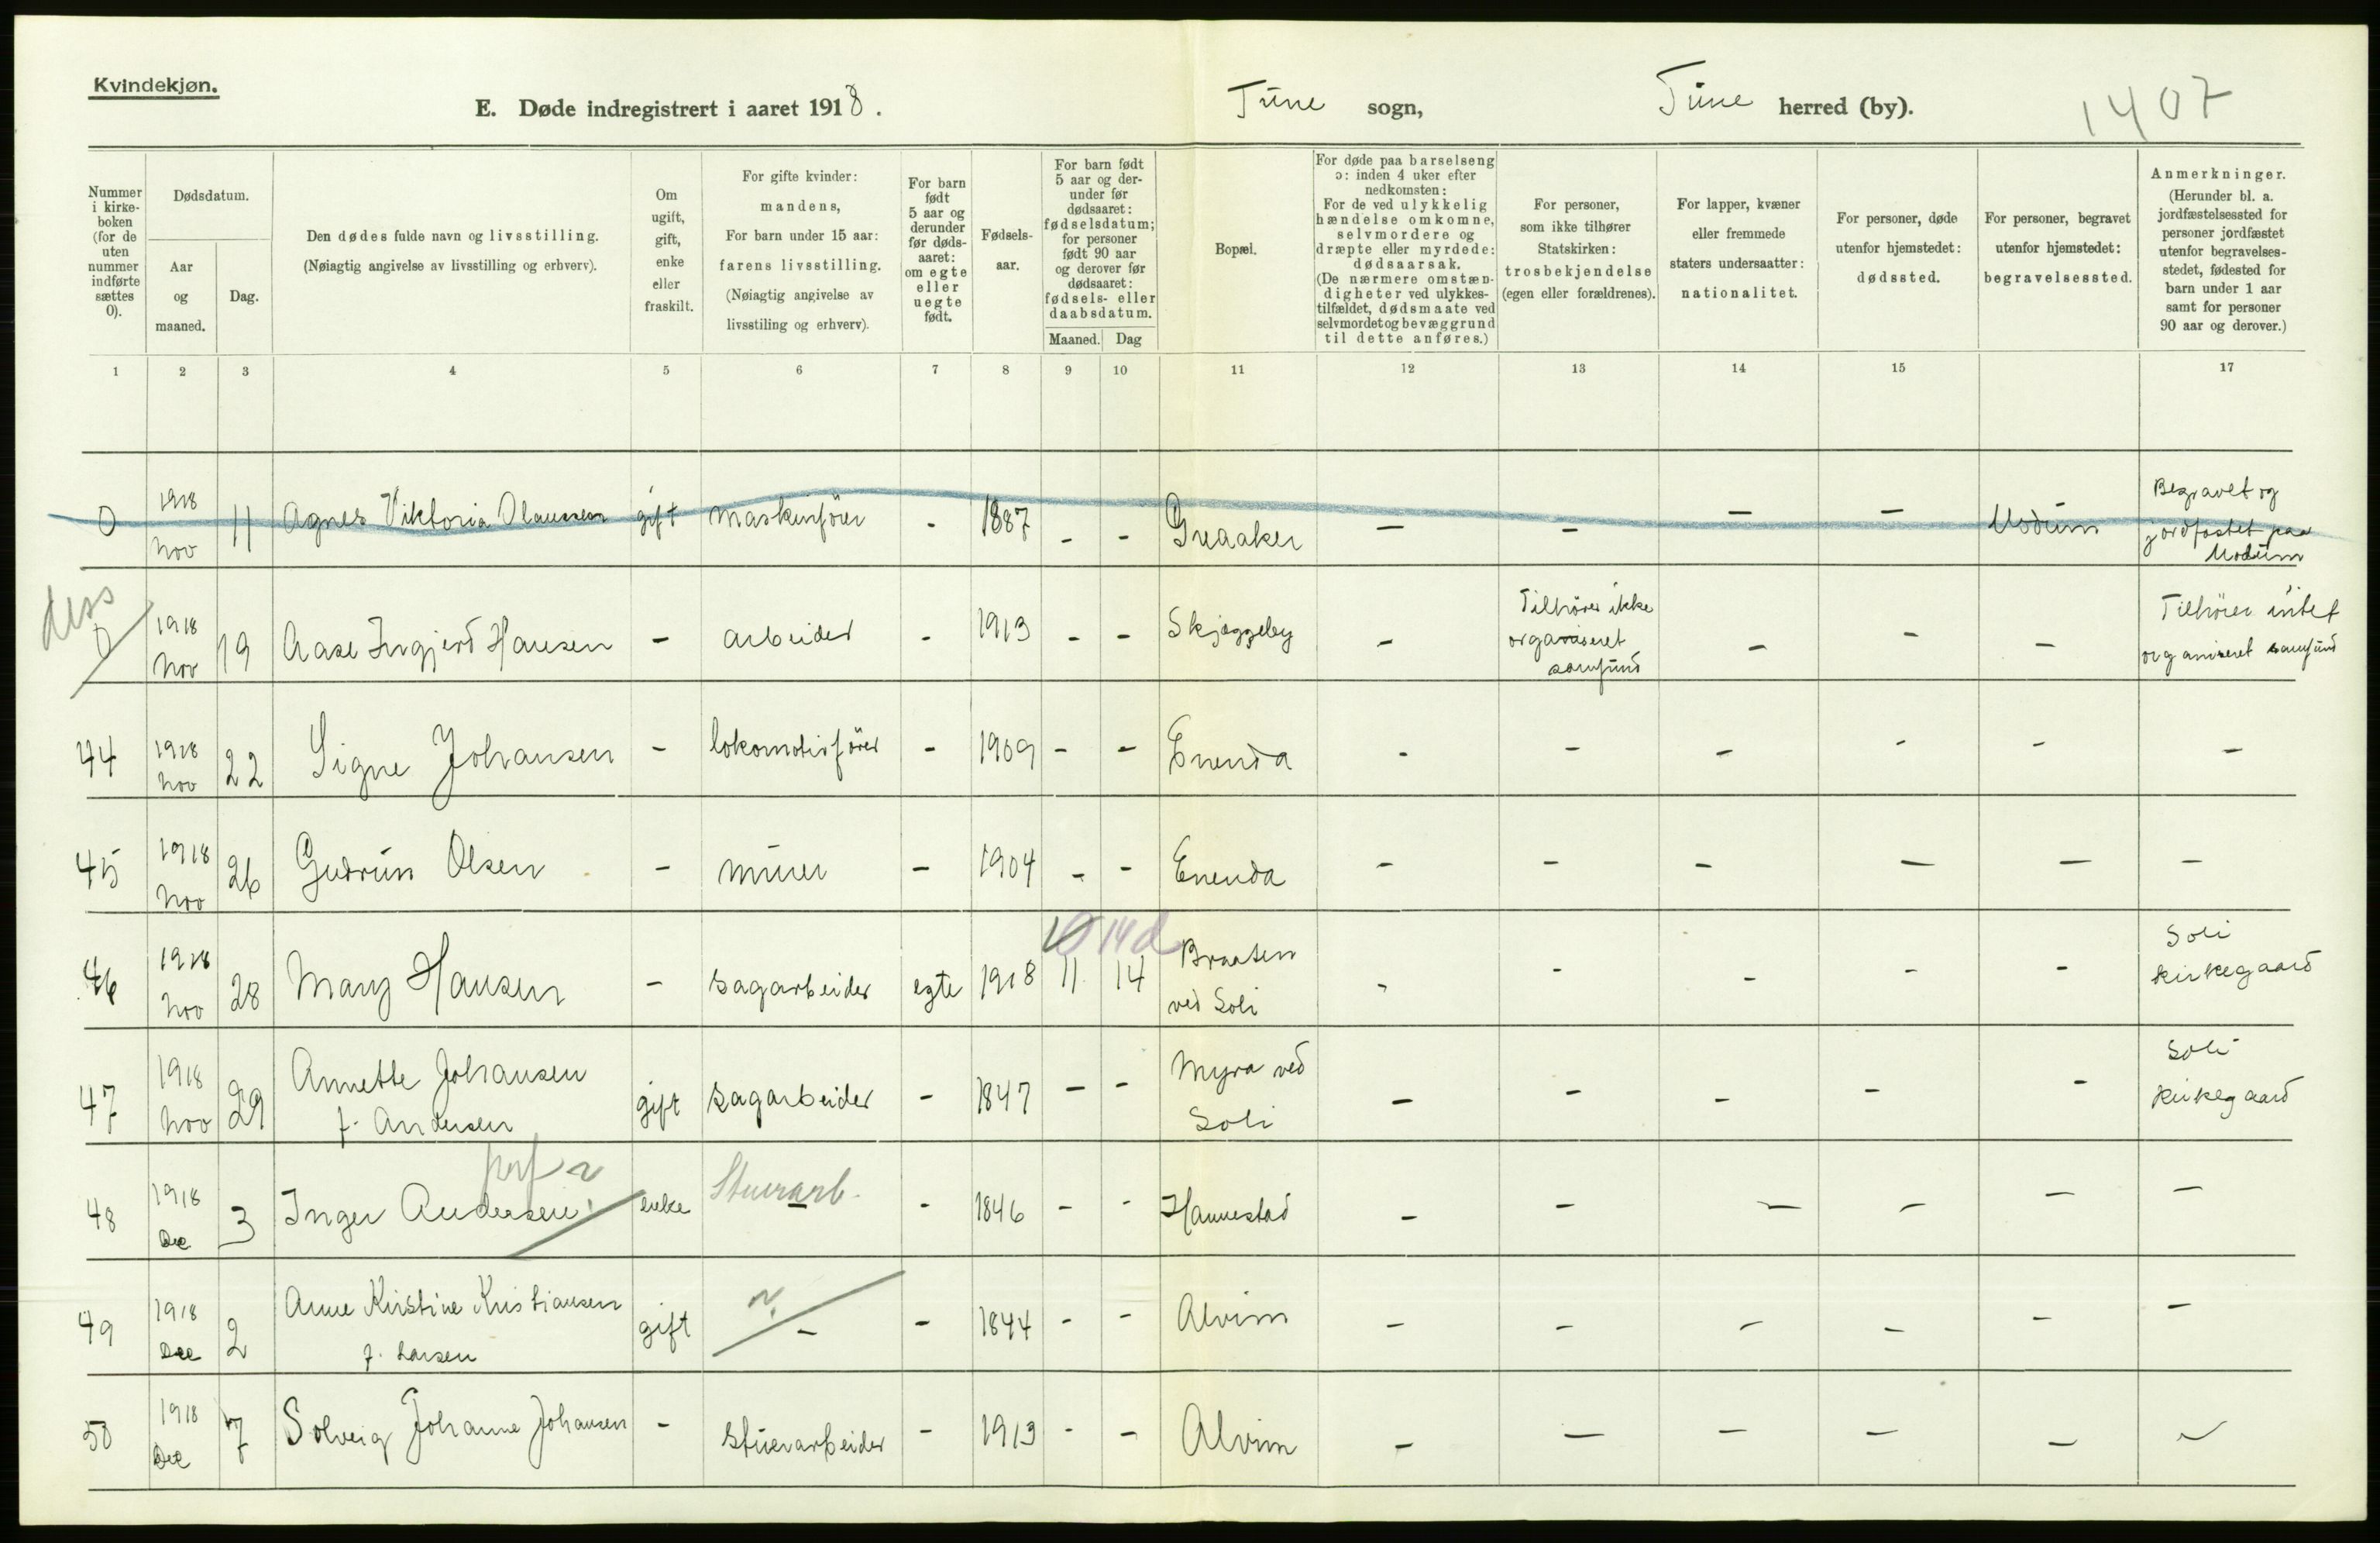 Kvindekjøn.
E. Døde indregistrert i aaret 1918. Tune sogn, Tune herred (by). 1407
Nummer i kirke-boken (for de uten nummer indførte sættes 0).
Dødsdatum.
Aar og maaned.
Dag.
Den dødes fulde navn og livsstilling.
(Nøiagtig angivelse av livsstilling og erhverv).
Om ugift, gift, enke eller fraskilt.
For gifte kvinder: mandens,
For barn under 15 aar: farens livsstilling.
(Nøiagtig angivelse av livsstiling og erhverv).
For barn født 5 aar og derunder før døds-aaret: om egte eller uegte født.
Fødsels-aar.
For barn født 5 aar og der-under før dødsaaret: fødselsdatum; for personer født 90 aar og derover før dødsaaret: fødsels- eller daabsdatum.
Maaned. Dag
Bopæl.
For døde paa barselseng ɔ: inden 4 uker efter nedkomsten:
For de ved ulykkelig hændelse omkomne, selvmordere og dræpte eller myrdede: dødsaarsak.
(De nærmere omstæn-digheter ved ulykkes-tilfældet, dødsmaate ved selvmordet og bevæggrund til dette anføres.)
For personer, som ikke tilhører Statskirken: trosbekjendelse (egen eller forældrenes).
For lapper, kvæner eller fremmede staters undersaatter: nationalitet.
For personer, døde utenfor hjemstedet: dødssted.
For personer, begravet utenfor hjemstedet: begravelsessted.
Anmerkninger.
(Herunder bl. a. jordfæstelsessted for personer jordfæstet utenfor begravelses-stedet, fødested for barn under 1 aar samt for personer 90 aar og derover.)
1 2 3 4 5 6 7 8 9 10 11 12 13 14 15 17
0 1918 Nov 11 Agnes Viktoria Olaussen gift maskinfører - 1887 - - Greaaker - - - - Modum Begravet og jordfæstet paa Modum
dess
0 1918 Nov 19 Aase Ingjerd Hansen - arbeider - 1913 - - Skjæggeby - Tilhører ikke organiseret samfund - - - Tilhører intet organiseret samfund
44 1918 Nov 22 Signe Johansen - lokomotivfører - 1909 - - Enenda - - - - - -
45 1918 Nov 26 Gudrun Olsen - murer - 1904 - - Enenda - - - - - -
14 d
46 1918 Nov 28 Mary Hansen - sagarbeider egte 1918 11 14 Braaten ved Soli - - - - - Soli kirkegaard
47 1918 Nov 29 Annette Johansen f. Andersen gift sagarbeider - 1847 - - Myra ved Soli - - - - - Soli kirkegaard
48 1918 Dec 3 Inger Andersen enke Stuerarb. - 1846 - - Hannestad - - - - - -
49 1918 Dec 2 Anne Kirstine Kristiansen f. Larsen gift - - 1844 - - Alvim - - - - - -
50 1918 Dec 7 Solveig Johanne Johansen - stuerarbeider - 1913 - - Alvim - - - - - -